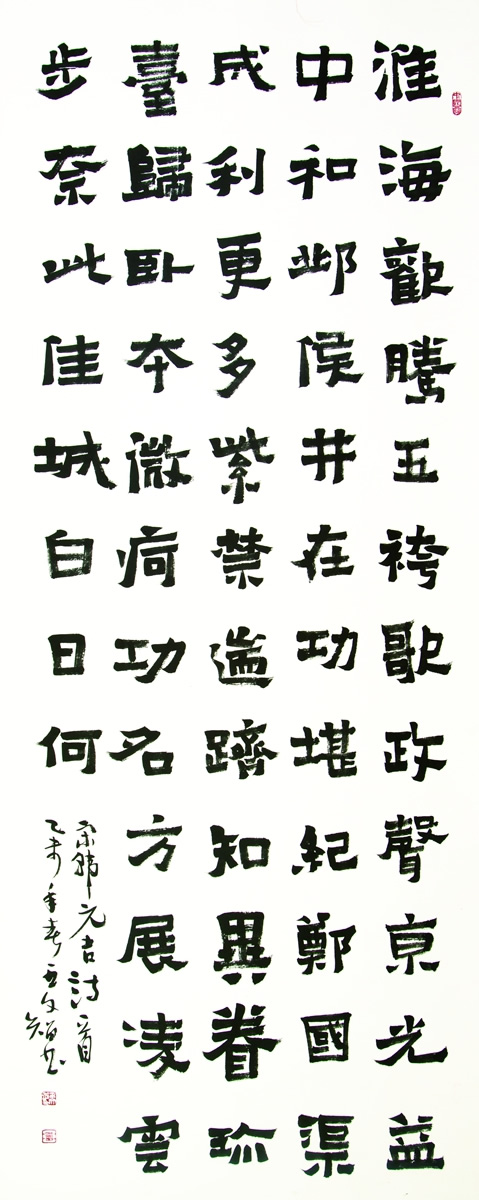 淮海歡騰五袴歌政聲京光益
中和邺侯井在功堪紀鄭國渠
成利更多紫禁遄躋知異眷珎
臺歸臥夲微疴功名方展凌雲
步奈此佳城白日何
宋韩元吉詩一首
乙未年春